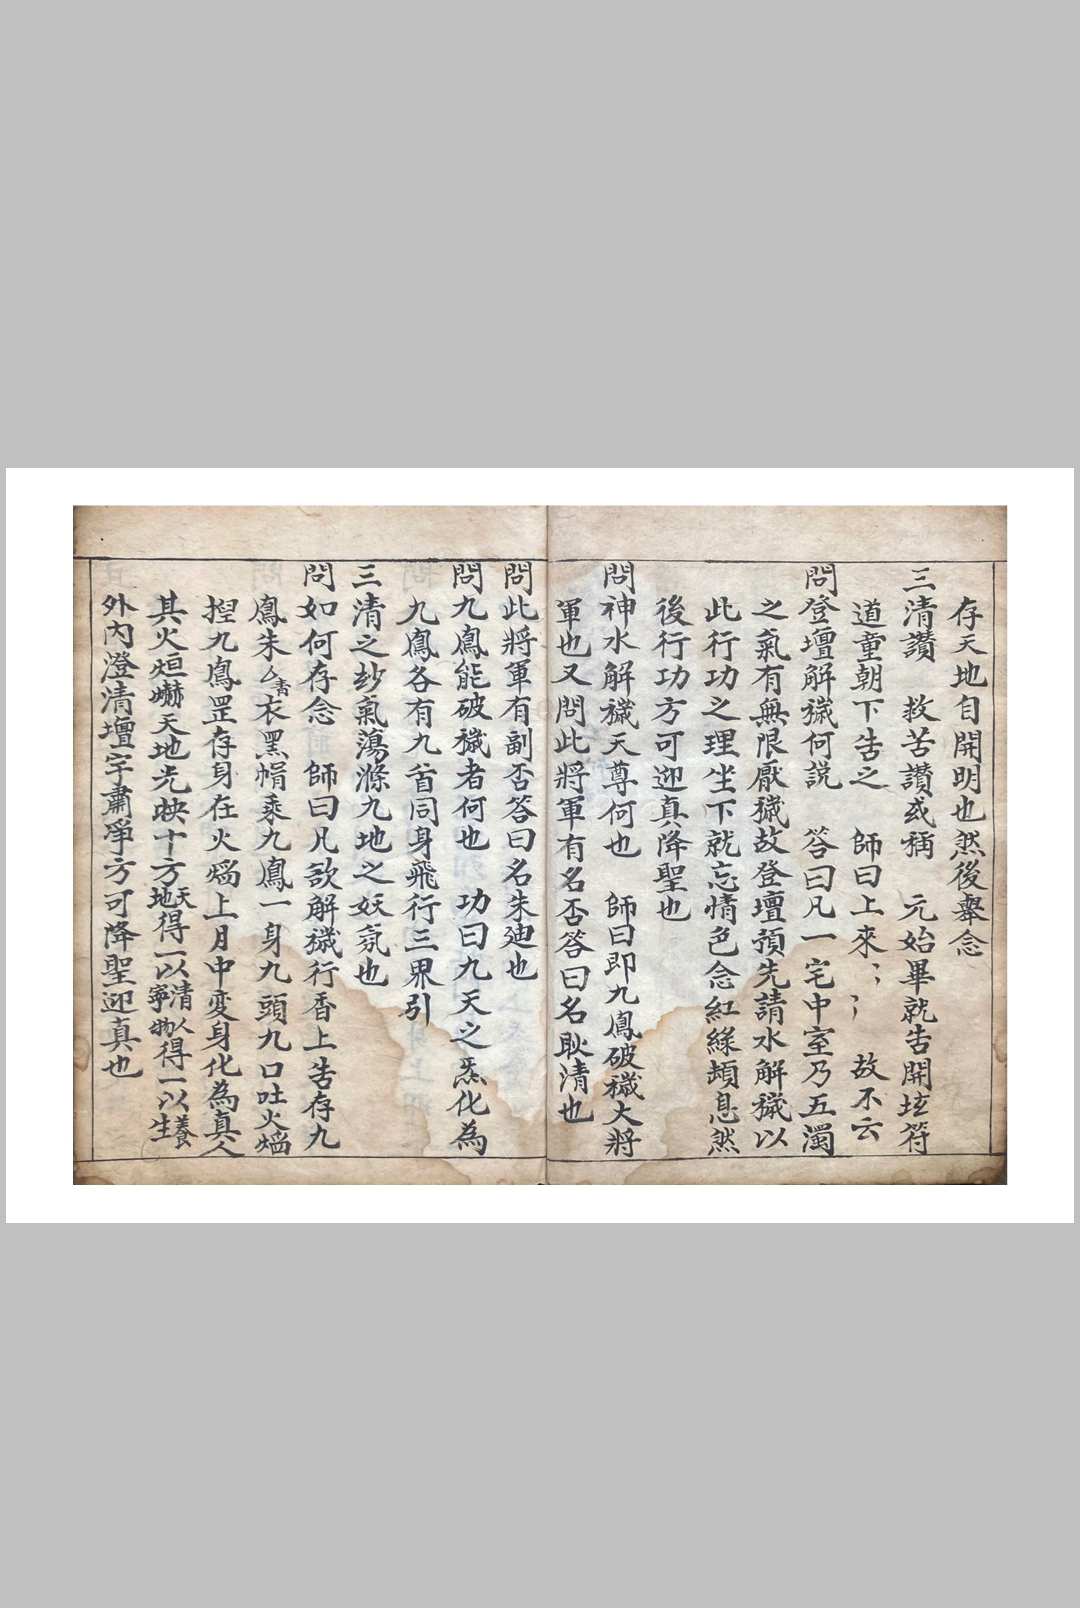 存天地自開明也然後舉念
三清讚　救苦讚或稱　元始畢就告開坛符
道童朝下告之　師曰上來〻〻　故不云
問登壇解穢何説　答曰凡一宅中室乃五濁
之氣有無限厭穢故登壇預先請水解穢以
此行功之理坐下就忘情色念紅綠頓息然
後行功方可迎真降聖也
問神水解穢天尊何也　師曰即九鳳破穢大將
軍也又問此將軍有名否答曰名耿清也
問此將軍有副否答曰名朱廸也
問九鳳能破穢者何也　功曰九天之炁化為
九鳳各有九首同身飛行三界引
三清之妙氣蕩滌九地之妖氛也
問如何存念　師曰凡欲解穢行香上告存九
鳳朱衣黑幘乘九鳳一身九頭九口吐火焰
揑九鳳罡存身在火焰上月中変身化為真人
其火烜爀天地光映十方天地得一以清寧人物得一以養生
外內澄清壇宇肅淨方可降聖迎真也